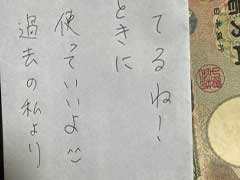 てるね!
ときに
使っていいよ
過去の私より